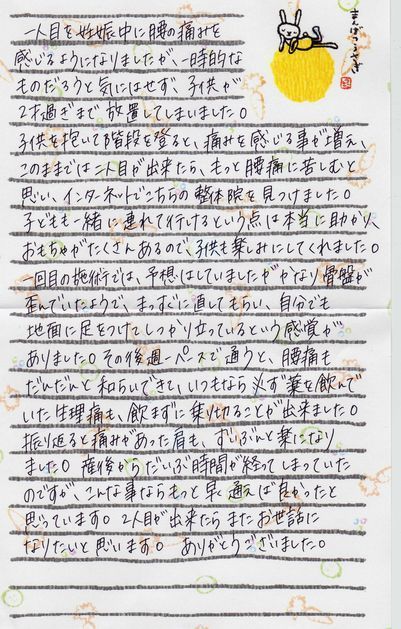 まんげつうさぎ
一人目を妊娠中に腰の痛みを
感じるようになりましたが、一時的な
ものだろうと気にはせず、子供が
2才過ぎまで放置してしまいました。
子供を抱いて階段を登ると、痛みを感じる事が増え、
このままでは二人目が出来たら、もっと腰痛に苦しむと
思い、インターネットでこちらの整体院を見つけました。
子ども一緒に連れて行けるという点は本当に助かり、
おもちゃがたくさんあるので、子供も楽しみにしてくれました。
一回目の施術では、予想はしていましたがかなり骨盤が
歪んでいたようで、まっすぐに直してもらい、自分でも
地面に足をつけてしっかり立っているという感覚が
ありました。その後週一ペースで通うと、腰痛も
だんだんと和らいできて、いつもなら必ず薬を飲んで
いた生理痛も、飲まずに乗り切ることが出来ました。
振り返ると痛みがあった肩も、ずいぶんと楽になり
ました。産後からだいぶ時間が経ってしまっていた
のですが、こんな事ならもっと早く通えば良かったと
思っています。2人目が出来たらまたお世話に
なりたいと思います。ありがとうございました。